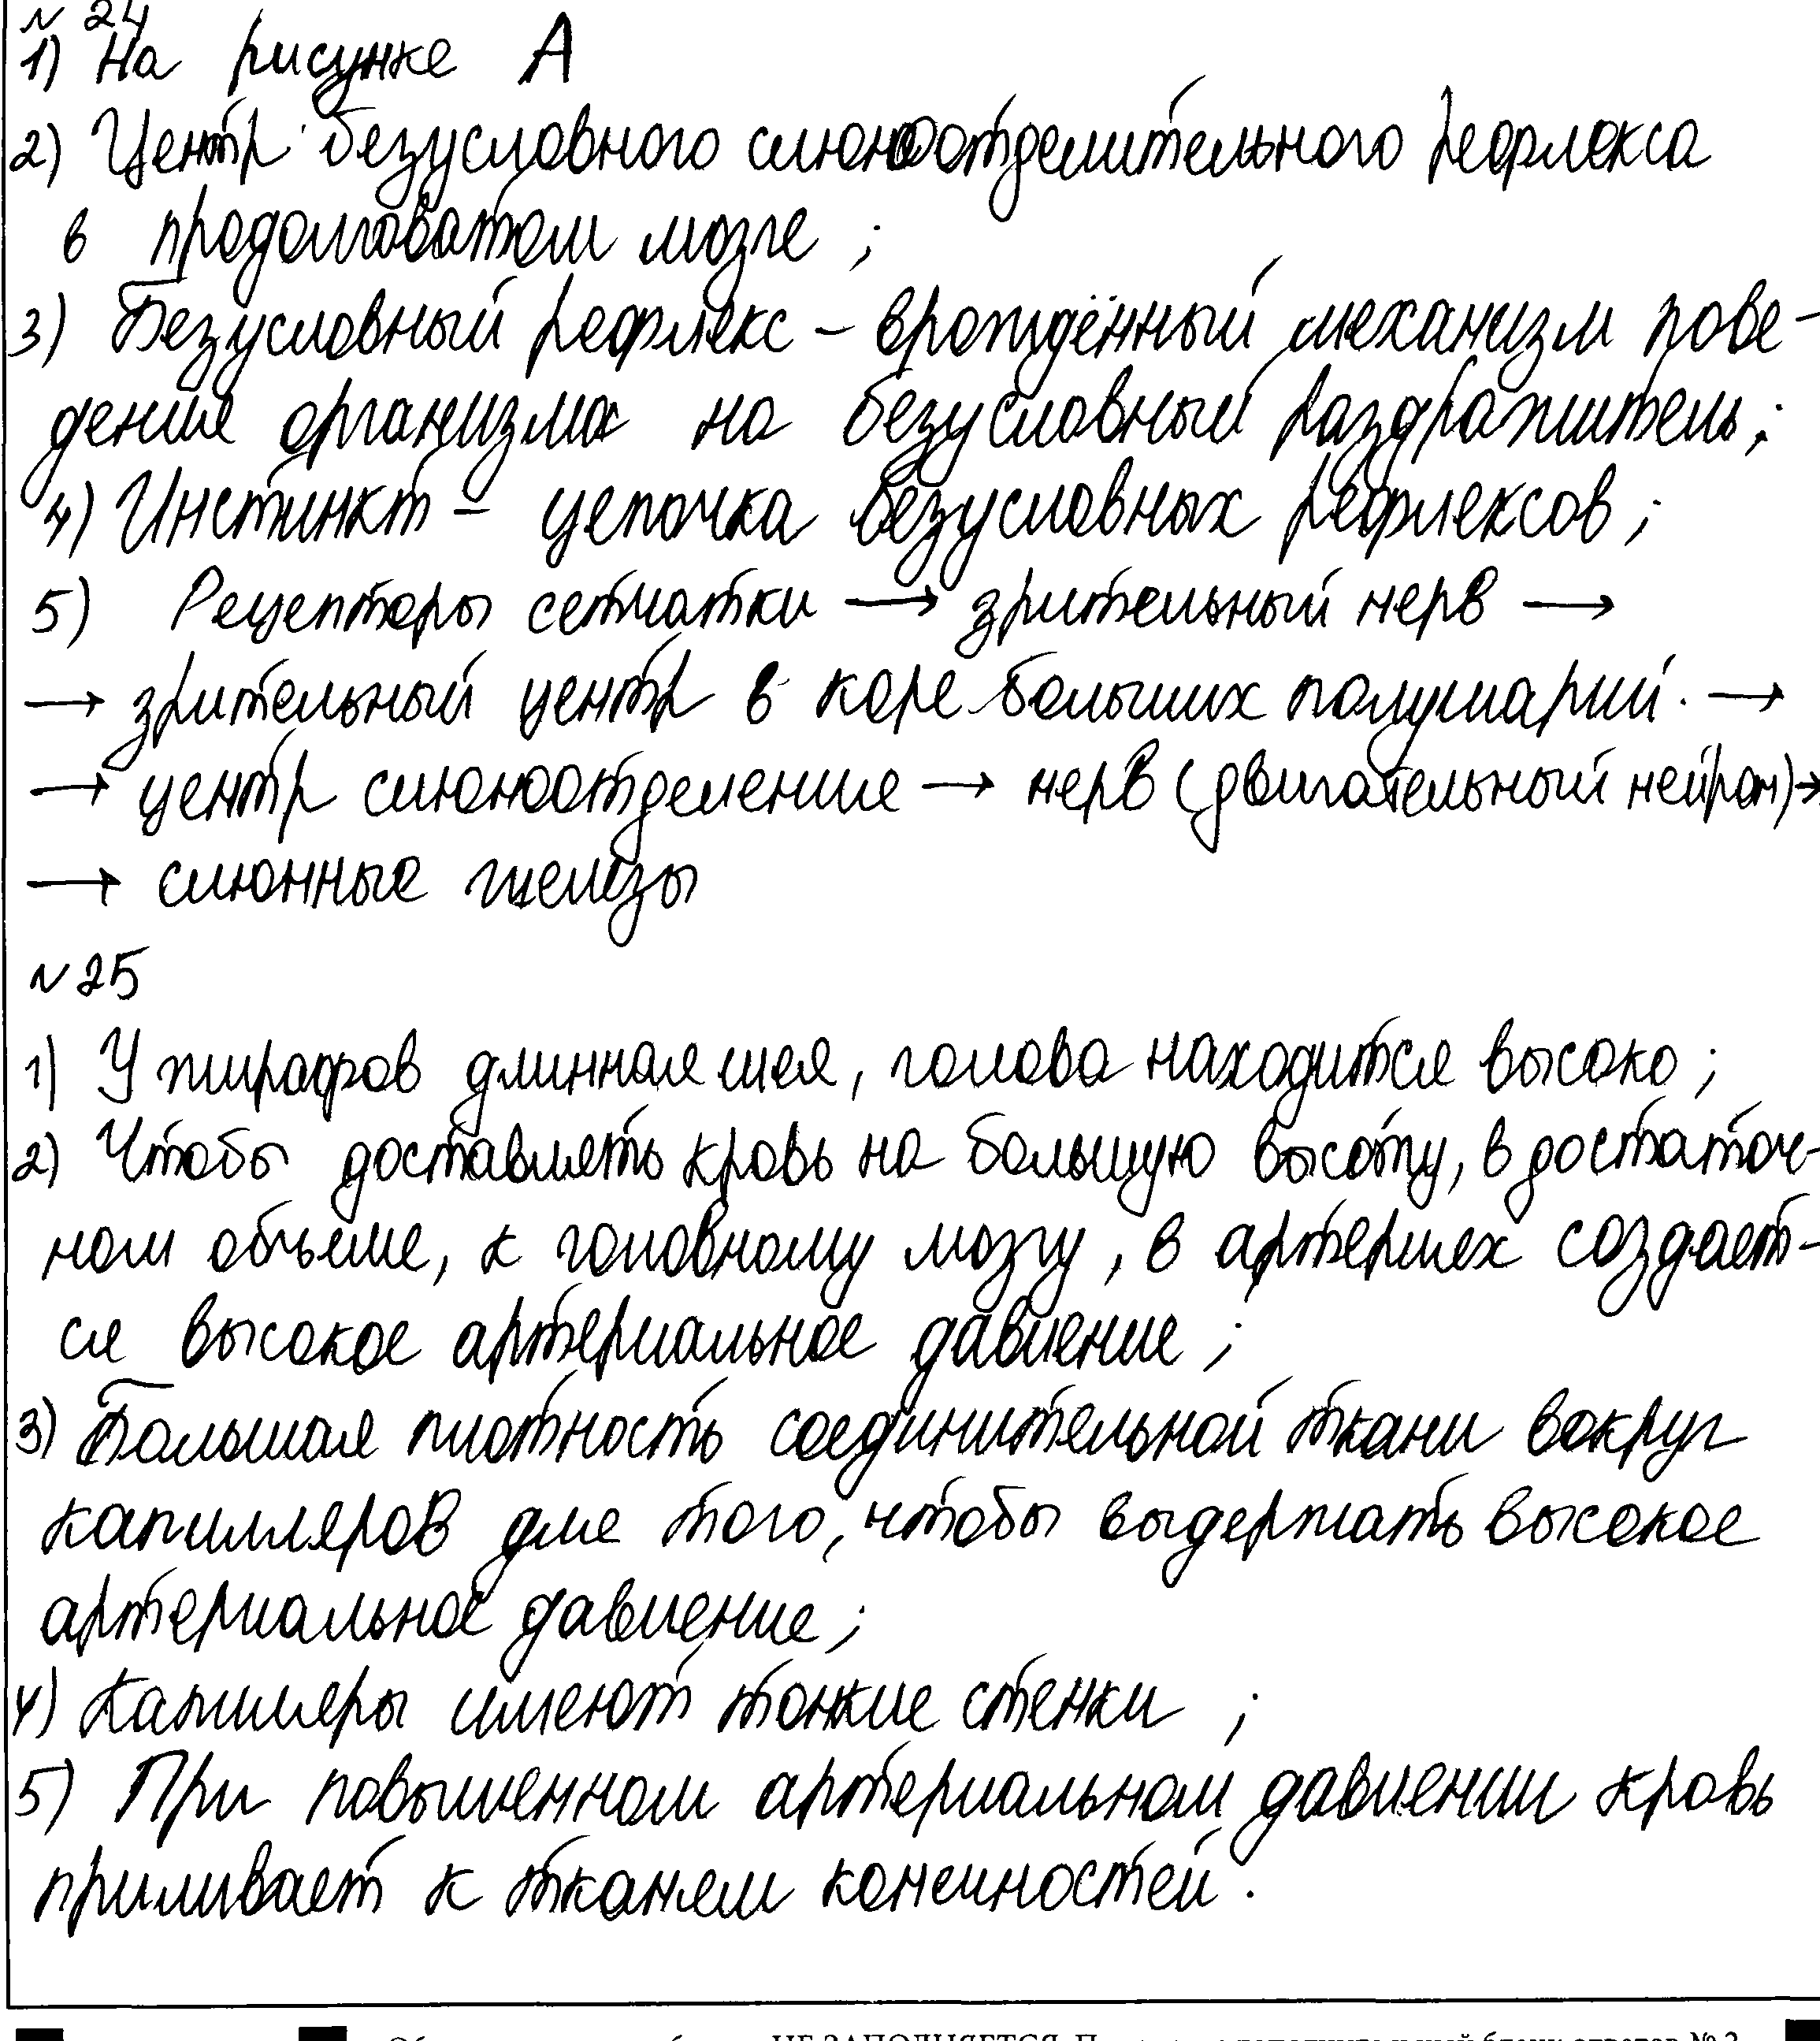 № 24
1) На рисунке А
2) Центр безусловного слюноотделительного рефлекса
в продолговатом мозге ;
3) Безусловный рефлекс – врождённый механизм пове-
дения организма на безусловный раздражитель;
4) Инстинкт – цепочка безусловных рефлексов ;
5) Рецепторы сетчатки → зрительный нерв →
→ зрительный центр в коре больших полушарий. →
→ центр слюноотделение → нерв (двигательный нейрон) →
→ слюнные железы
№ 25
1) У жирафов длинная шея, голова находится высоко ;
2) Чтобы доставлять кровь на большую высоту, в достаточ-
ном объеме, к головному мозгу, в артериях создает-
ся высокое артериальное давление ;
3) Большая плотность соединительной ткани вокруг
капилляров для того, чтобы выдержать высокое
артериальное давление ;
4) Капиляры имеют тонкие стенки ;
5) При повышенном артериальном давлении кровь
приливает к тканям конечностей.